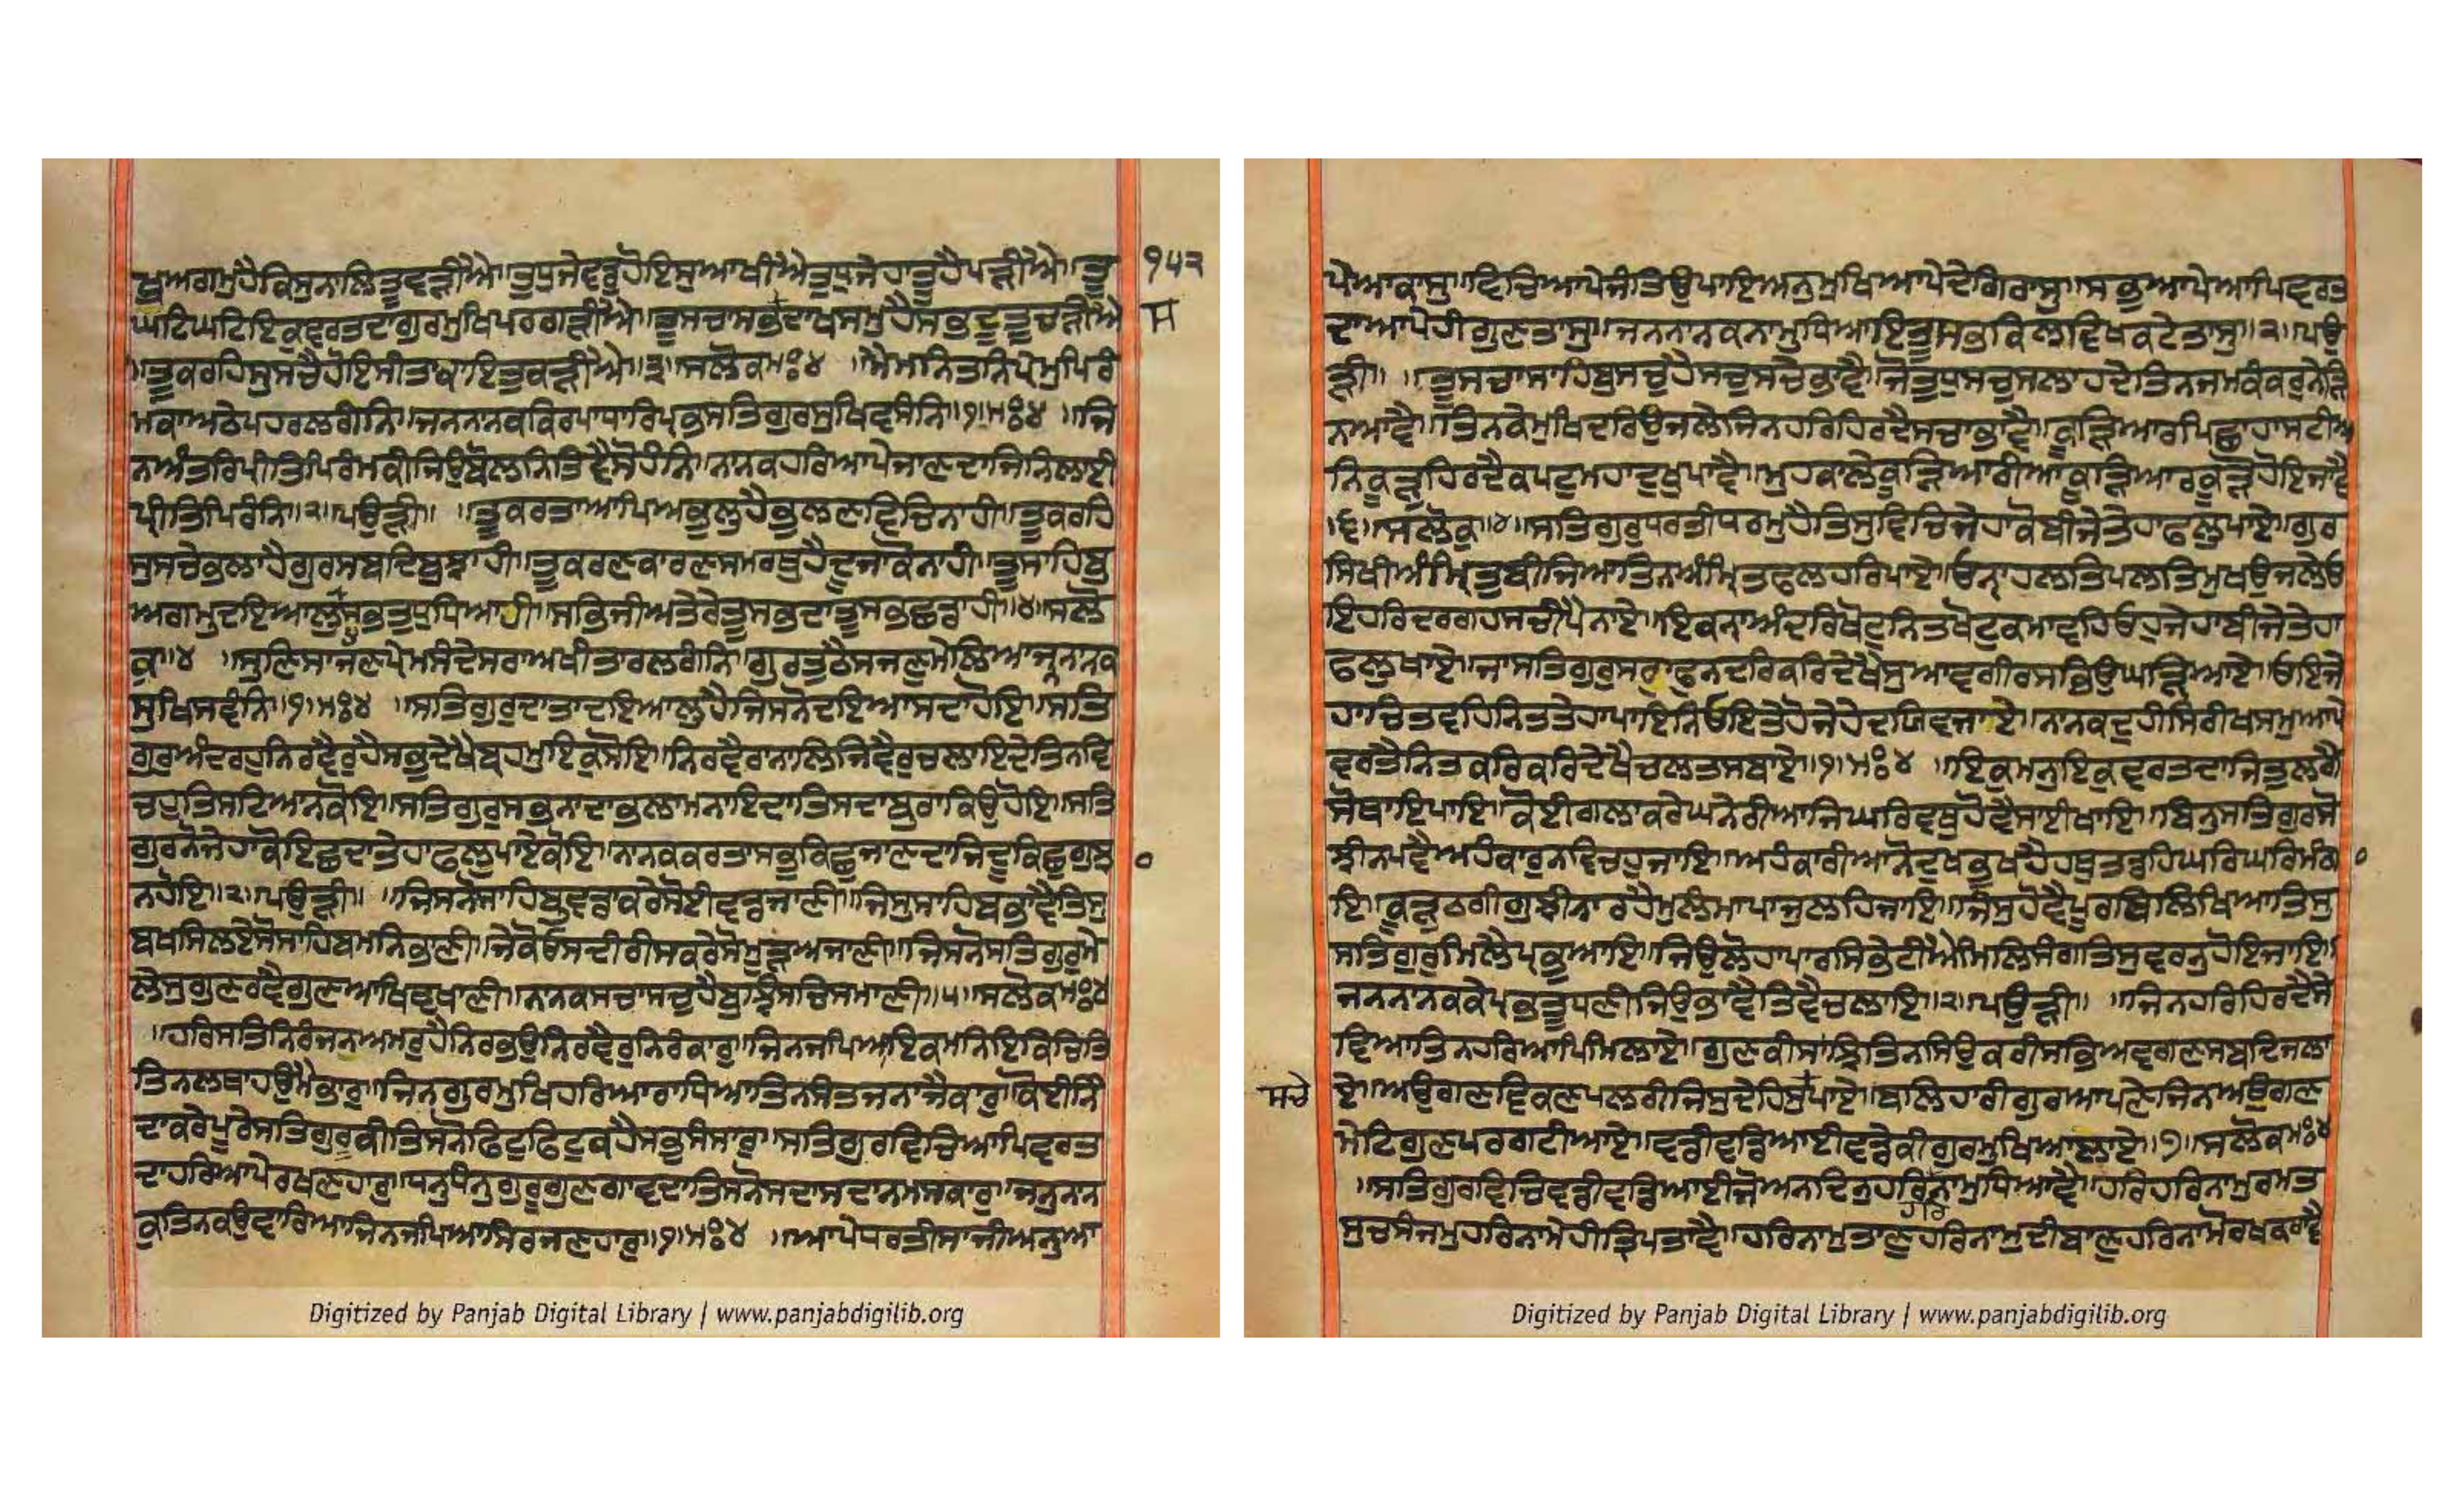 ਬੁਅਗਮੁਹੈਕਿਸੁਨਾਲਿਤੂਵੜੀਐ॥ਤੁਧੁਜੇਵਡੁਹੋਇਸੁਆਖੀਐਤੁਧੁਜੇਹਾਤੂਹੈਪੜੀਐ॥ਤੂ
੧੫੨
ਘਟਿਘਟਿਇਕੁਵਰਤਦਾਗੁਰਮੁਖਿਪਰਗੜੀਐ॥ਤੂਸਚਾਸਭਦਾਖਸਮੁਹੈਸਭਦੂਤੂਚੜੀਐ
ਸ
॥ਤੂਕਰਹਿਸੁਸਚੇਹੋਇਸੀਤਾਕਾਇਤੁਕੜੀਐ॥੩॥ਸਲੋਕਮਃ੪ ॥ਮੈਮਨਿਤਨਿਪ੍ਰੇਮੁਪਿਰੰ
ਮਕਾਅਠੇਪਹਰਲਗੰਨਿ॥ਜਨਨਾਨਕਕਿਰਪਾਧਾਰਿਪ੍ਰਭਸਤਿਗੁਰਸੁਖਿਵਸੰਨਿ॥੧॥ਮਃ੪ ॥ਜਿ
ਨਅੰਤਰਿਪ੍ਰੀਤਿਪਿਰੰਮਕੀਜਿਉਬੋਲਨਿਤਿਵੈਸੋਹੰਨਿ॥ਨਾਨਕਹਰਿਆਪੇਜਾਣਦਾਜਿਨਿਲਾਈ
ਪ੍ਰੀਤਿਪਿਰੰਨਿ॥੨॥ਪਉੜੀ॥ ॥ਤੂਕਰਤਾਆਪਿਅਭੁਲੁਹੈਭੁਲਣਵਿਚਿਨਾਹੀ॥ਤੂਕਰਹਿ
ਸੁਸਚੇਭਲਾਹੈਗੁਰਸਬਦਿਬੁਝਾਹੀ॥ਤੂਕਰਣਕਾਰਣਸਮਰਥੁਹੈਦੂਜਾਕੋਨਾਹੀ॥ਤੂਸਾਹਿਬੁ
ਅਗਮੁਦਇਆਲੁਸਭਤੁਧੁਧਿਆਹੀ॥ਸਭਿਜੀਅਤੇਰੇਤੂਸਭਦਾਤੂਸਭਛਡਾਹੀ॥੪॥ਸਲੋ
ਕ॥੪ ॥ਸੁਣਿਸਾਜਣਪ੍ਰੇਮਸੰਦੇਸਰਾਅਖੀਤਾਰਲਗੰਨਿ॥ਗੁਰਤੁਠੈਸਜਣੁਮੇਲਿਆਜਨਨਾਨਕ
ਸੁਖਿਸਵੰਨਿ॥੧॥ਮਃ੪ ॥ਸਤਿਗੁਰੁਦਾਤਾਦਇਆਲੁਹੈਜਿਸਨੋਦਇਆਸਦਾਹੋਇ॥ਸਤਿ
ਗੁਰੁਅੰਦਰਹੁਨਿਰਵੈਰੁਹੈਸਭੁਦੇਖੈਬ੍ਰਹਮੁਇਕੁਸੋਇ॥ਨਿਰਵੈਰਾਨਾਲਿਜਿਵੈਰੁਚਲਾਇਦੇਤਿਨਵਿ
ਚਹੁਤਿਸਟਿਆਨਕੋਇ॥ਸਤਿਗੁਰੁਸਭਨਾਦਾਭਲਾਮਨਾਇਦਾਤਿਸਦਾਬੁਰਾਕਿਉਹੋਇ॥ਸਤਿ
ਗੁਰਨੋਜੇਹਾਕੋਇਛਦਾਤੇਹਾਫਲੁਪਾਏਕੋਇ॥ਨਾਨਕਕਰਤਾਸਭੁਕਿਛੁਜਾਣਦਾਜਿਦੂਕਿਛੁਗੁਝਾ
ਨਹੋਇ॥੨॥ਪਉੜੀ॥ ॥ਜਿਸਨੋਸਾਹਿਬੁਵਡਾਕਰੇਸੋਈਵਡਜਾਣੀ॥ਜਿਸੁਸਾਹਿਬਭਾਵੈਤਿਸੁ
ਬਖਸਿਲਏਸੋਸਾਹਿਬਮਨਿਭਾਣੀ॥ਜੇਕੋਓਸਦੀਰੀਸਕਰੇਸੋਮੂੜਅਜਾਣੀ॥ਜਿਸਨੋਸਤਿਗੁਰੁਮੇ
ਲੇਸੁਗੁਣਰਵੈਗੁਣਆਖਿਵਖਾਣੀ॥ਨਾਨਕਸਚਾਸਚੁਹੈਬੁਝਿਸਚਿਸਮਾਣੀ॥੫॥ਸਲੋਕਮਃ੪
॥ਹਰਿਸਤਿਨਿਰੰਜਨਅਮਰੁਹੈਨਿਰਭਉਨਿਰਵੈਰੁਨਿਰੰਕਾਰੁ॥ਜਿਨਜਪਿਆਇਕਮਨਿਇਕਚਿਤਿ
ਤਿਨਲਥਾਹਉਮੈਭਾਰੁ॥ਜਿਨਗੁਰਮੁਖਿਹਰਿਆਰਾਧਿਆਤਿਨਸੰਤਜਨਾਜੈਕਾਰੁ॥ਕੋਈਨਿੰ
ਦਾਕਰੇਪੂਰੇਸਤਿਗੁਰੂਕੀਤਿਸਨੋਫਿਟੁਫਿਟੁਕਹੈਸਭੁਸੰਸਾਰੁ॥ਸਤਿਗੁਰਵਿਚਿਆਪਿਵਰਤ
ਦਾਹਰਿਆਪੇਰਖਣਹਾਰੁ॥ਧਨੁਧੰਨੁਗੁਰੂਗੁਣਗਾਵਦਾਤਿਸਨੋਸਦਾਸਦਾਨਮਸਕਾਰੁ॥ਜਨੁਨਾਨ
ਕੁਤਿਨਕਉਵਾਰਿਆਜਿਨਜਪਿਆਸਿਰਜਣਹਾਰੁ॥੧॥ਮਃ੪ ॥ਆਪੇਧਰਤੀਸਾਜੀਅਨੁਆ
ਪੇਆਕਾਸੁ॥ਵਿਚਿਆਪੇਜੰਤਉਪਾਇਅਨੁਮੁਖਿਆਪੇਦੇਗਿਰਾਸੁ॥ਸਭੁਆਪੇਆਪਿਵਰਤ
ਦਾਆਪੇਹੀਗੁਣਤਾਸੁ॥ਜਨਨਾਨਕਨਾਮੁਧਿਆਇਤੂਸਭਕਿਲਵਿਖਕਟੇਤਾਸੁ॥੨॥ਪਉ
ੜੀ॥ ॥ਤੂਸਚਾਸਾਹਿਬੁਸਚੁਹੈਸਚੁਸਚੇਭਾਵੈ॥ਜੋਤੁਧੁਸਚੁਸਲਾਹਦੇਤਿਨਜਮਕੰਕਰੁਨੇੜਿ
ਨਆਵੈ॥ਤਿਨਕੇਮੁਖਦਰਿਉਜਲੇਜਿਨਹਰਿਹਿਰਦੈਸਚਾਭਾਵੈ॥ਕੂੜਿਆਰਪਿਛਾਹਾਸਟੀਅ
ਨਿਕੂੜੁਹਿਰਦੈਕਪਟੁਮਹਾਦੁਖੁਪਾਵੈ॥ਮੁਹਕਾਲੇਕੂੜਿਆਰੀਆਕੂੜਿਆਰਕੂੜੋਹੋਇਜਾਵੈ
॥੬॥ਸਲੋਕ॥੪॥ਸਤਿਗੁਰੁਧਰਤੀਧਰਮੁਹੈਤਿਸੁਵਿਚਿਜੇਹਾਕੋਬੀਜੇਤੇਹਾਫਲੁਪਾਏ॥ਗੁਰ
ਸਿਖੀਅੰਮ੍ਰਿਤੁਬੀਜਿਆਤਿਨਅੰਮ੍ਰਿਤਫਲੁਹਰਿਪਾਏ॥ਓਨਾਹਲਤਿਪਲਤਿਮੁਖਉਜਲੇਓ
ਇਹਰਿਦਰਗਹਸਚੀਪੈਨਾਏ॥ਇਕਨਾਅੰਦਰਿਖੋਟੁਨਿਤਖੋਟੁਕਮਾਵਹਿਓਹੁਜੇਹਾਬੀਜੇਤੇਹਾ
ਫਲੁਖਾਏ॥ਜਾਸਤਿਗੁਰੁਸਰਾਫੁਨਦਰਿਕਰਿਦੇਖੈਸੁਆਵਗੀਰਸਭਿਉਘੜਿਆਏ॥ਓਇਜੇ
ਹਾਚਿਤਵਹਿਨਿਤਤੇਹਾਪਾਇਨਿਓਇਤੇਹੋਜੇਹੇਦਯਿਵਜਾਏ॥ਨਾਨਕਦੁਹੀਸਿਰੀਖਸਮੁਆਪੇ
ਵਰਤੈਨਿਤਕਰਿਕਰਿਦੇਖੈਚਲਤਸਬਾਏ॥੧॥ਮਃ੪ ॥ਇਕੁਮਨੁਇਕੁਵਰਤਦਾਜਿਤੁਲਗੈ
ਸੋਥਾਇਪਾਇ॥ਕੋਈਗਲਾਕਰੇਘਨੇਰੀਆਜਿਘਰਿਵਥੁਹੋਵੈਸਾਈਖਾਇ॥ਬਿਨੁਸਤਿਗੁਰਸੋ
ਝੀਨਪਵੈਅਹੰਕਾਰੁਨਵਿਚਹੁਜਾਇ॥ਅਹੰਕਾਰੀਆਨੋਦੁਖਭੁਖਹੈਹਥੁਤਡਹਿਘਰਿਘਰਿਮੰਗਾ
ਇ॥ਕੂੜੁਠਗੀਗੁਝੀਨਾਰਹੈਮੁਲੰਮਾਪਾਜੁਲਹਿਜਾਇ॥ਜਿਸੁਹੋਵੈਪੂਰਬਿਲਿਖਿਆਤਿਸੁ
ਸਤਿਗੁਰੁਮਿਲੈਪ੍ਰਭੁਆਇ॥ਜਿਉਲੋਹਾਪਾਰਸਿਭੇਟੀਐਮਿਲਿਸੰਗਤਿਸੁਵਰਨੁਹੋਇਜਾਇ॥
ਜਨਨਾਨਕਕੇਪ੍ਰਭਤੂਧਣੀਜਿਉਭਾਵੈਤਿਵੈਚਲਾਇ॥੨॥ਪਉੜੀ॥ ॥ਜਿਨਹਰਿਹਿਰਦੈਸੇ
ਵਿਆਤਿਨਹਰਿਆਪਿਮਿਲਾਏ॥ਗੁਣਕੀਸਾਝਿਤਿਨਸਿਉਕਰੀਸਭਿਅਵਗਣਸਬਦਿਜਲਾ
ਏ॥ਅਉਗਣਵਿਕਣਪਲਰੀਜਿਸੁਦੇਹਿਸੁਪਾਏ॥ਬਲਿਹਾਰੀਗੁਰਆਪਣੇਜਿਨਿਅਉਗਣ
ਸਚੇ
ਮੇਟਿਗੁਣਪਰਗਟੀਆਏ॥ਵਡੀਵਡਿਆਈਵਡੇਕੀਗੁਰਮੁਖਿਆਲਾਏ॥੭॥ਸਲੋਕਮਃ੪
॥ਸਤਿਗੁਰਵਿਚਿਵਡੀਵਡਿਆਈਜੋਅਨਦਿਨੁਹਰਿਨਾਮੁਧਿਆਵੈ॥ਹਰਿਹਰਿਨਾਮੁਰਮਤ
ਹਰਿ
ਸੁਚਸੰਜਮੁਹਰਿਨਾਮੇਹੀਤ੍ਰਿਪਤਾਵੈ॥ਹਰਿਨਾਮੁਤਾਣੁਹਰਿਨਾਮੁਦੀਬਾਣੁਹਰਿਨਾਮੋਰਖਕਰਾਵੈ
Digitized by Panjab Digital Library | www.panjabdigilib.org
Digitized by Panjab Digital Library | www.panjabdigilib.org